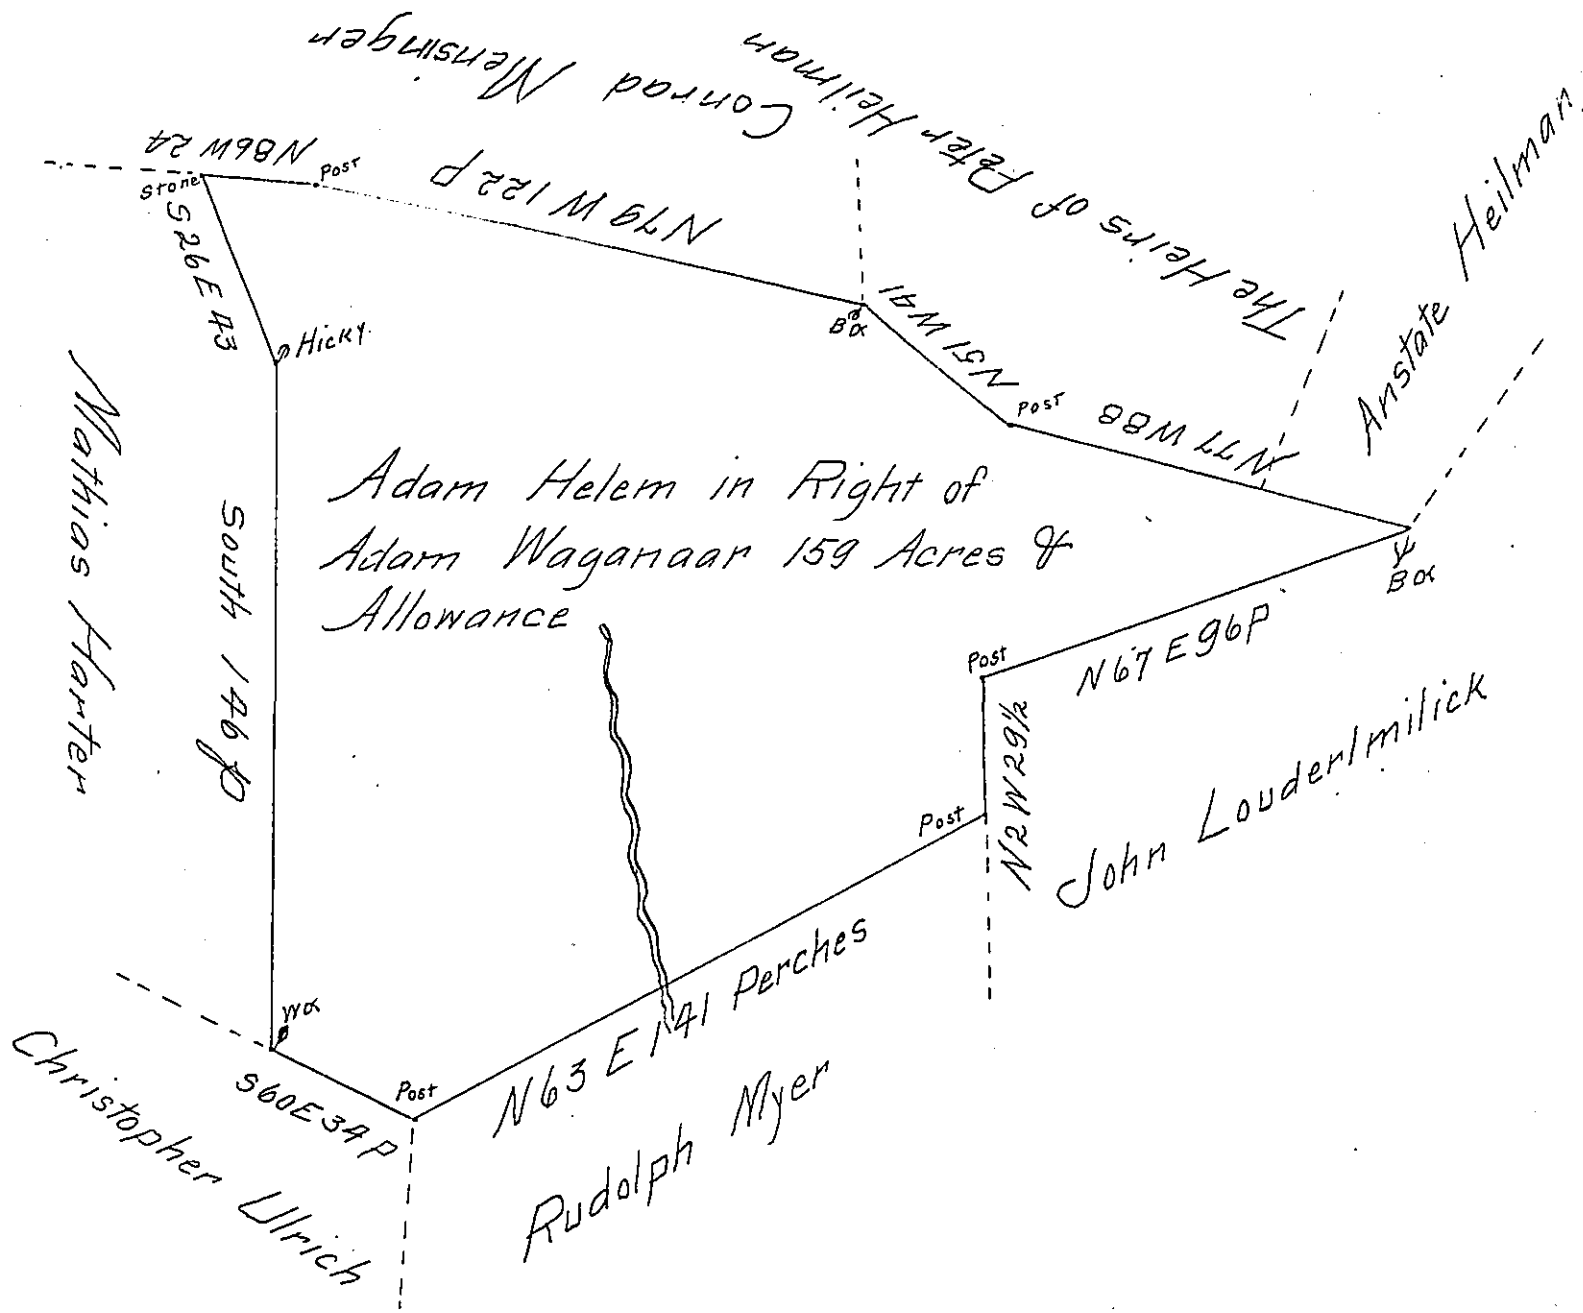 Conrad Mensinger
The Heirs of Peter Heilman
Anstate Heilman
N86W 24
Stone
Post
N79 W 122 P
S26E 43
Hicky.
BO
N51 W41
Post
N77 W88
BO
Mathias Harter
South 146 p
Adam Helem in Right of
Adam Waganaar 159 Acres &
Allowance
Post
N67 E96P
N2 W 29½
Post
John Louderlmilick
WO
S60E 34 P
Post
N63 E 141 Perches
Christopher Ulrich
Rudolph Myer